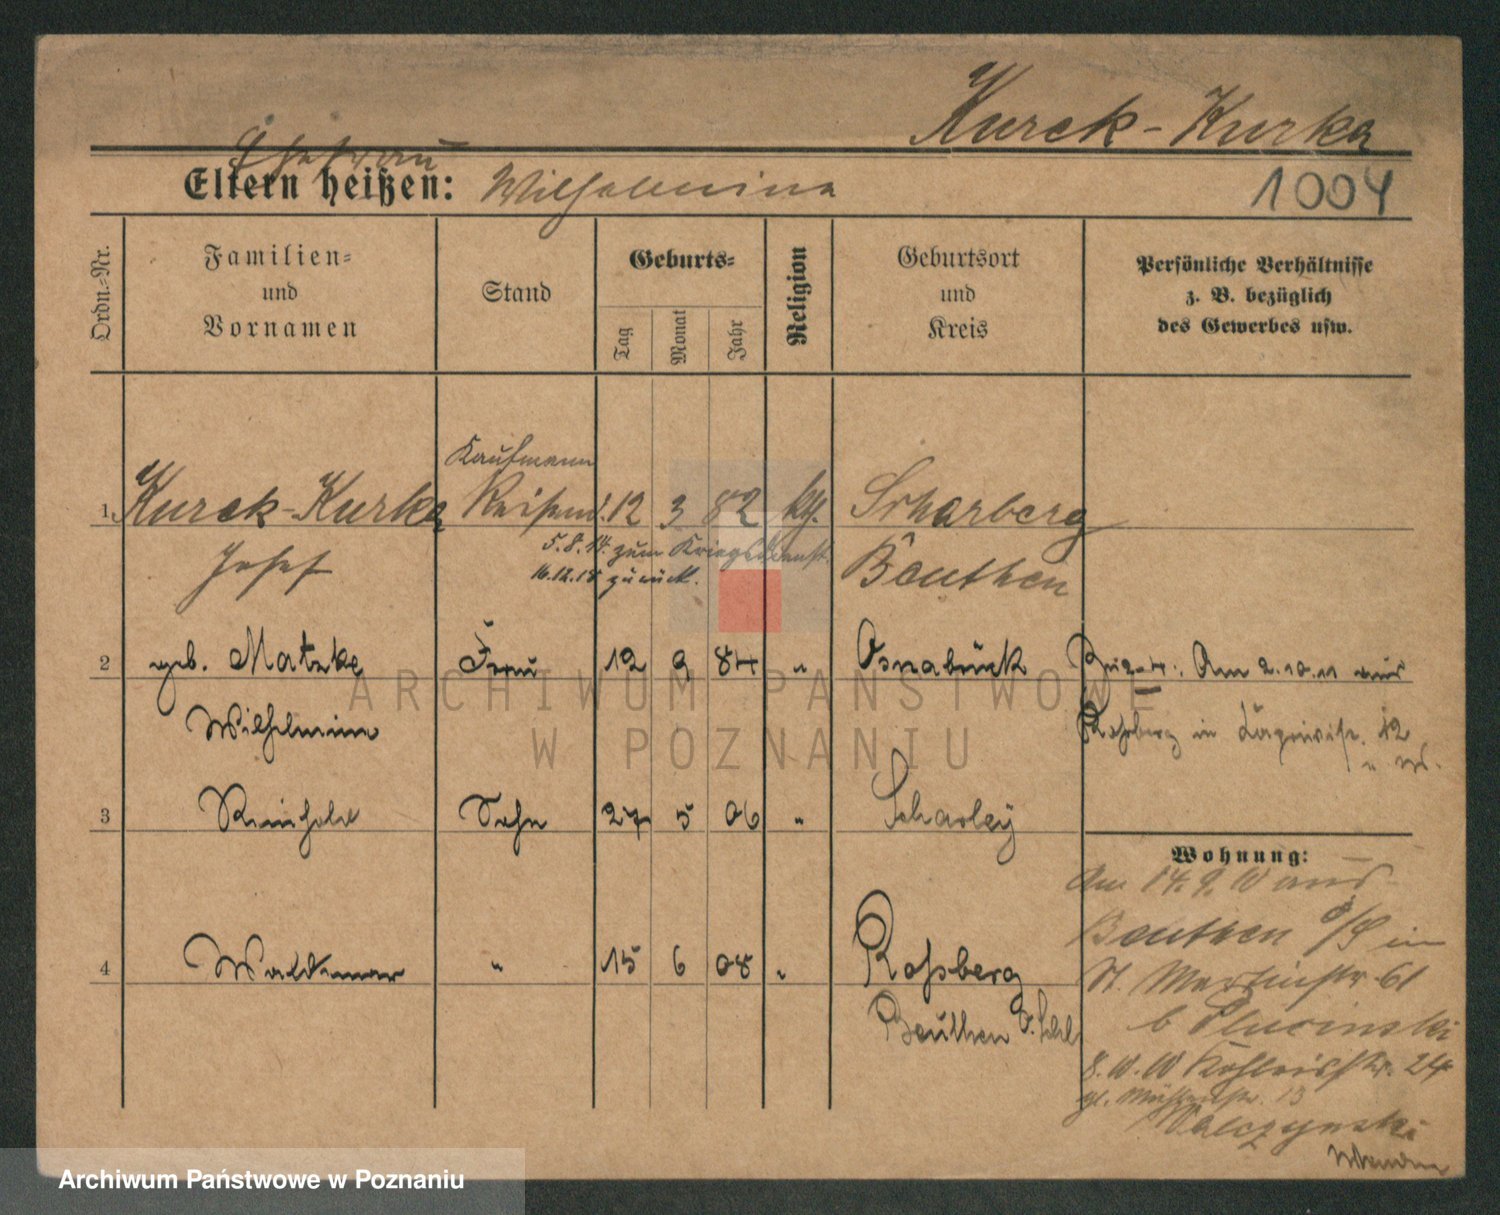 Kurck-Kurka
Ehefrau
Eltern heißen: Wilhelmina
1004
Ordn.-Nr.
Familien-
und
Vornamen
Stand
Geburts-
Tag
Monat
Jahr
Religion
Geburtsort
und
Kreis
Persönliche Verhältnisse
z. B. bezüglich
des Gewerbes usw.
Kaufmann
1 Kurck-Kurka Reisend. 12 3 82 kth. Scharberg
5.8.14. zum Kriegsdienst.
Josef Beuthen
16.12.18 zurück.
2 geb. Matzke Frau 12 9 84 " Osnabrück Am 2.10.11 aus
Wilhelmine Roßberg in 12
3 Reinhold Sohn 27 5 06 " Scharley
Wohnung:
Am 14.9.10 aus
Beuthen O/S in
4 Waldemar " 15 6 08 " Roßberg
St. Martinstr. 61
Beuthen O. Schl
b Plucinski
24
13
Walczynski
ARCHIWUM PAŃSTWOWE
W POZNANIU
Archiwum Państwowe w Poznaniu